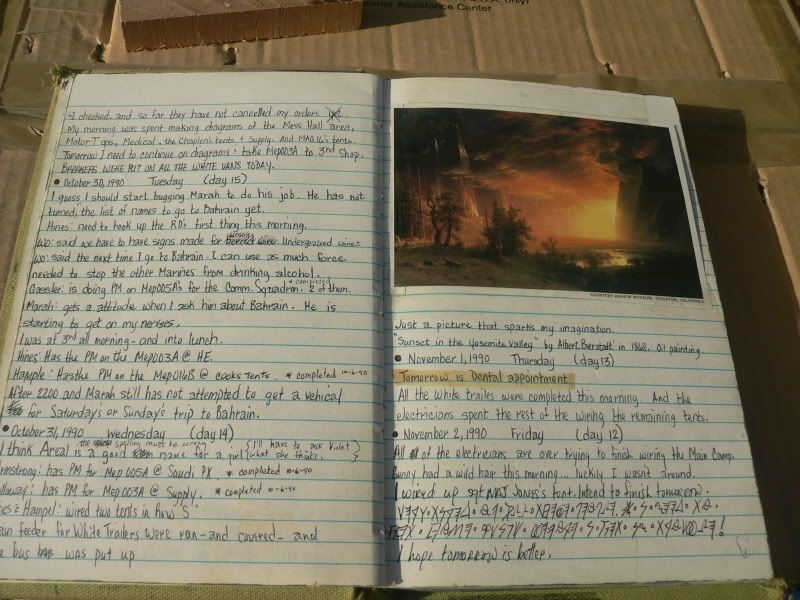 omer Assistance Center
I checked - and so far they have not cancelled my orders yet.
My morning was spent making diagrams of the Mess Hall area,
Motor T ops, Medical, the Chaplen's tents & Supply. And MAG16's tents.
Tomorrow I need to continue on diagrams & take Mep003A to 3rd shop.
BREAKERS WERE PUT ON ALL THE WHITE VANS TODAY.
• October 30, 1990 Tuesday (day 15)
I guess I should start bugging Marah to do his job. He has not
turned the list of names to go to Bahrain yet.
Hines: need to hook up the RD's first thing this morning.
Wo: said we have to have signs made for Underground wires
Wo: said the next time I go to Bahrain. I can use as much force
needed to stop the other Marines from drinking alcohol.
Gassler: is doing PM on Mep005A's for the Comm. Squadron. *complete 2 of them.
Marah: gets a attitude when I ask him about Bahrain. He is
starting to get on my nerves.
I was at 3rd all morning - and into lunch.
Hines: Has the PM on the Mep003A @ HE.
Hample: Has the PM on the Mep016B @ cooks tents. * completed 10-6-90
After 2200 and Marah still has not attempted to get a vehical
for Saturdays or Sunday's trip to Bahrain.
• October 31, 1990 Wednesday (day 14)
the spelling must be wrong
I think Areal is a good name for a girl {I'll have to ask Violet what she thinks.}
Armstrong: has PM for Mep 005A @ Saudi PX. * completed 10-6-90
olloway: has PM for Mep 003A @ Supply. * completed 10-6-90
es & Hampel: wired two tents in Row "S"
ain feeder for White Trailers were ran - and covered - and
e bus was put up
COURTESY HAGGIN MUSEUM, STOCKTON, CALIFORNIA
Just a picture that sparks my imagination.
"Sunset in the Yosemite Valley" by Albert Bierstadt in 1868. Oil painting.
• November 1, 1990 Thursday (day 13)
Tomorrow is Dental appointment
All the white trailes were completed this morning. And the
electricians spent the rest of the wiring the remaining tents.
• November 2, 1990 Friday (day 12)
All of the electricians are over trying to finish wiring the Main Camp.
Bunny had a wild hair this morning... luckily I wasn't around.
I wired up sgt Jones's tent. Intend to finish tomorrow.
I hope tomorrow is better.